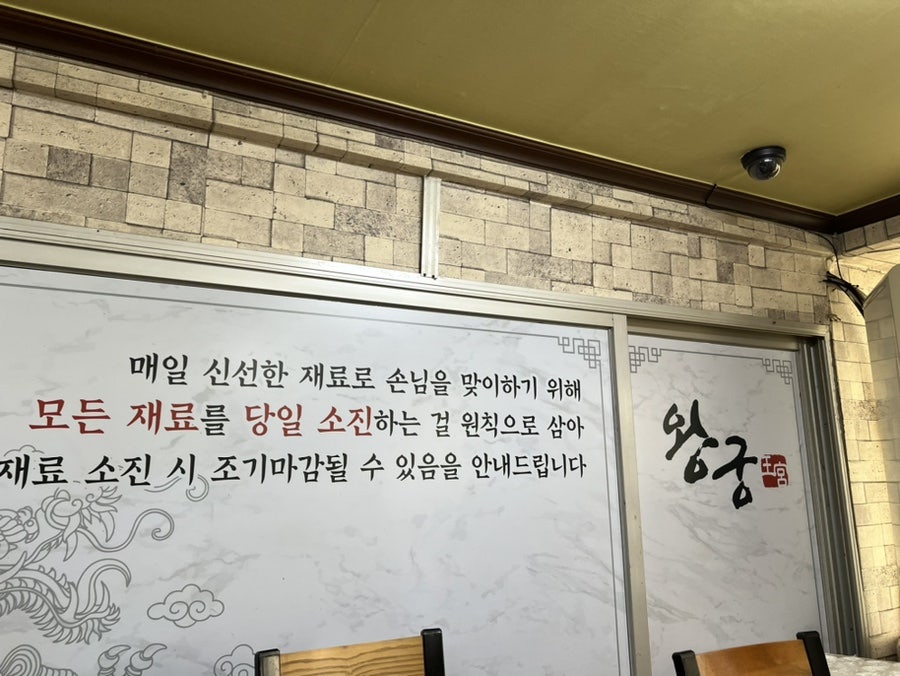 매일 신선한 재료로 손님을 맞이하기 위해
모든 재료를 당일 소진하는 걸 원칙으로 삼아
재료 소진 시 조기마감될 수 있음을 안내드립니다
왕궁
王宮